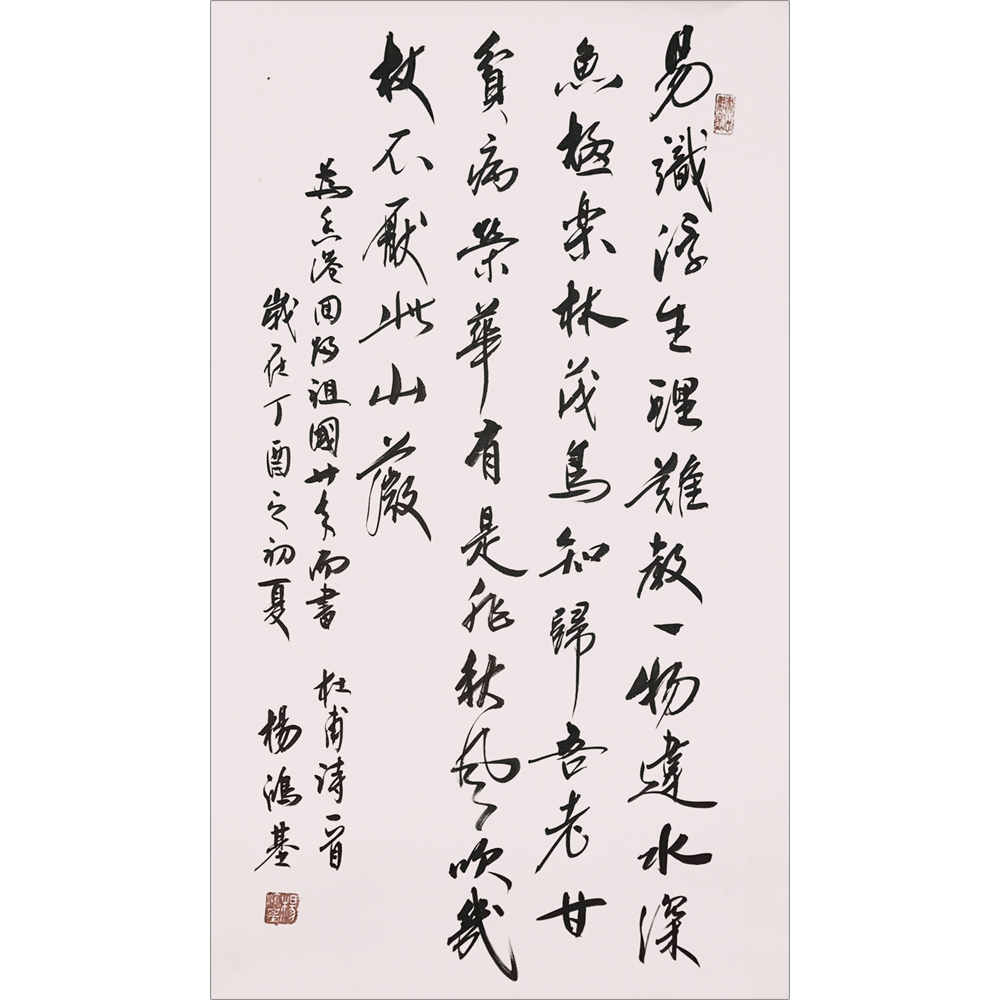 易識浮生理難教一物違水深
魚極楽林茂鳥知歸吾老甘
貧病榮華有是非秋風吹幾
杖不厭此山薇
為香港回歸祖國廿年而書 杜甫詩一首
歲在丁酉之初夏 楊鴻基